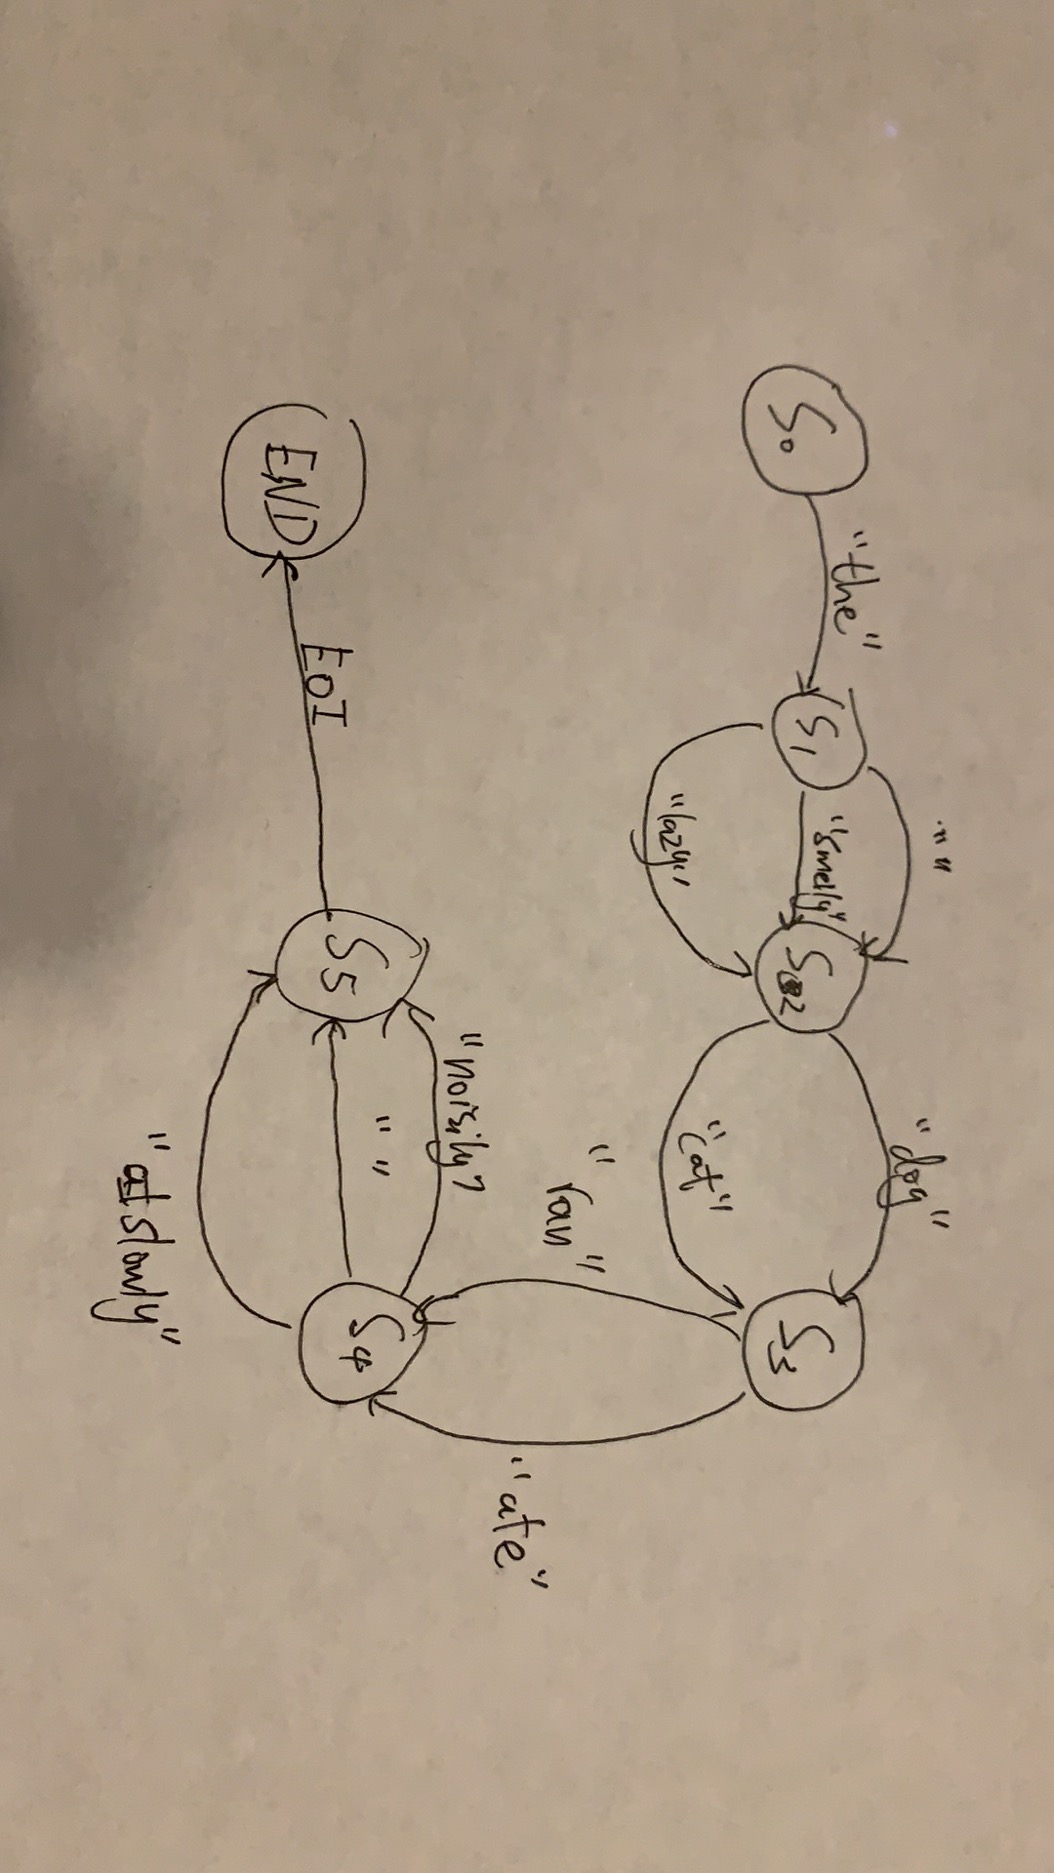 S0
"the"
S1
" "
"smelly"
"lazy"
S2
"dog"
"cat"
S3
"ran"
"ate"
S4
"noisily"
" "
"slowly"
S5
EOI
END